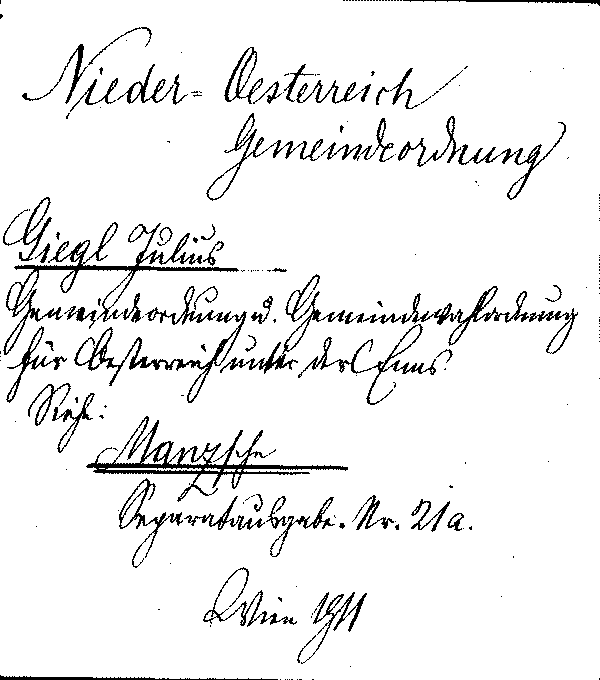 Nieder=Oesterreich
Gemeindeordnung
Giegl Julius
Gemeindeordnung u. Gemeindewahlordnung
für Oesterreich unter der Enns
Siehe:
Manzsche
Separatausgabe. Nr. 21a.
Wien 1911